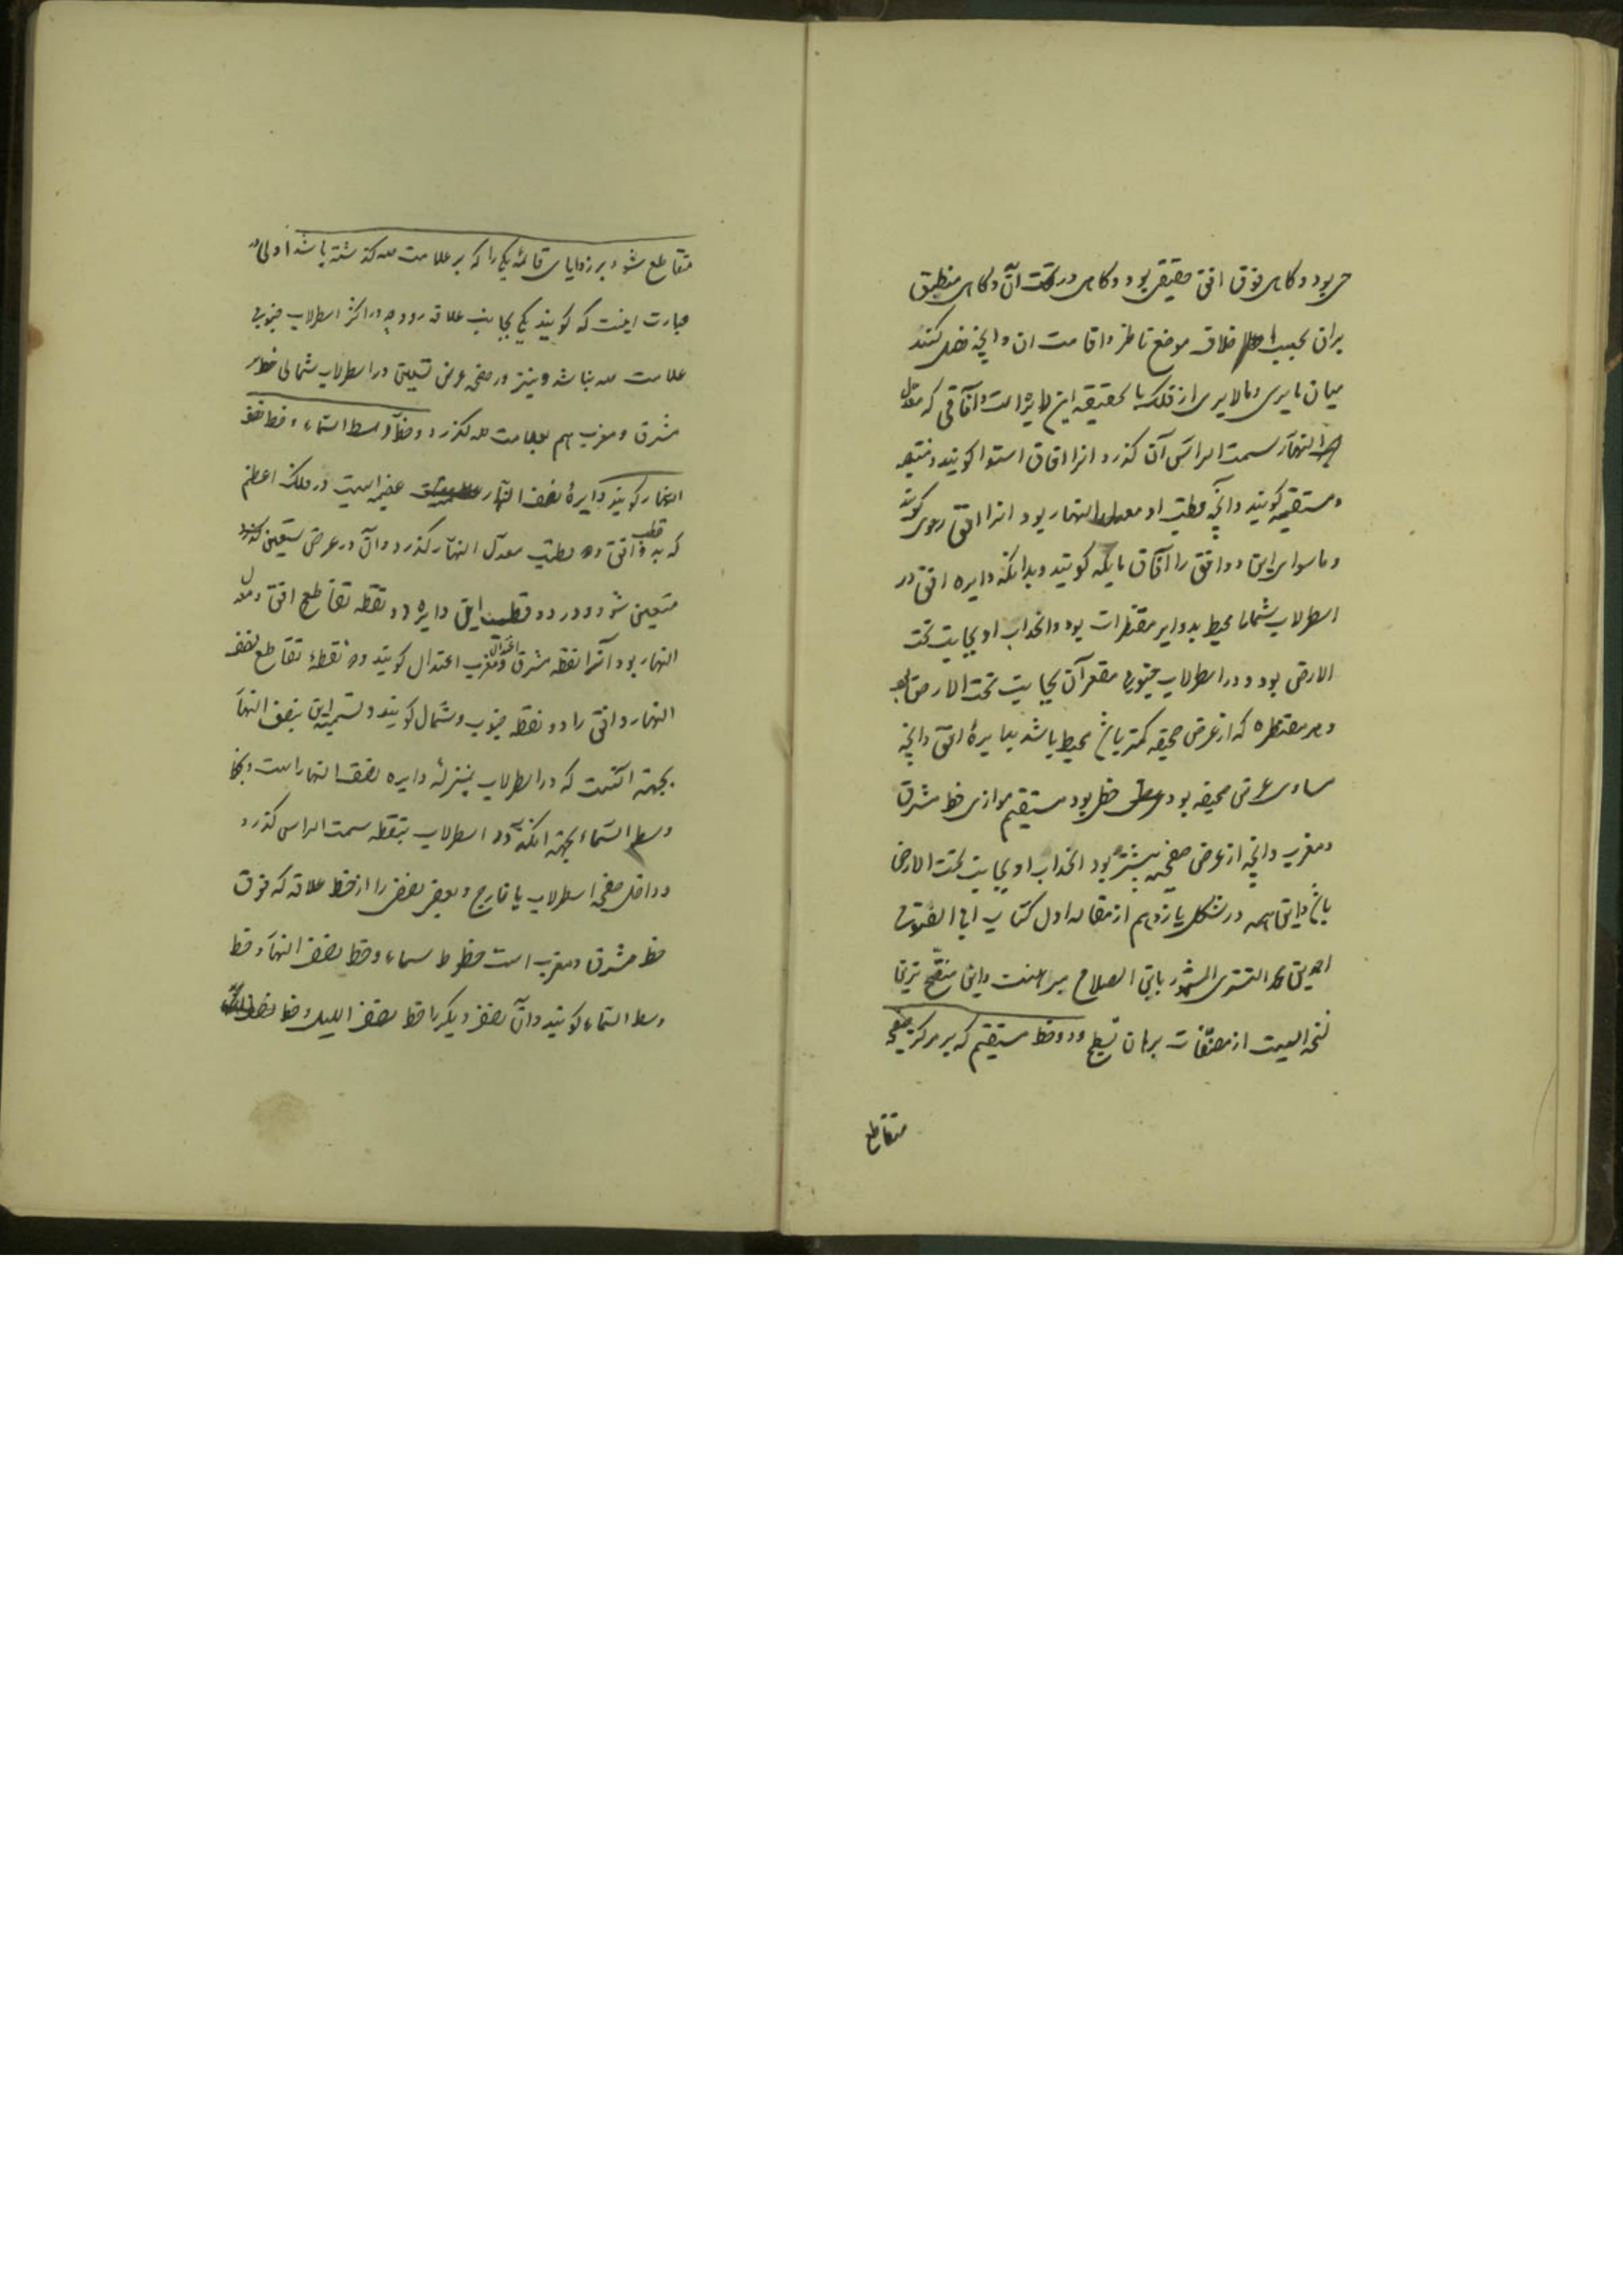 حسی بود و گاهی فوق افق حقیقی بود و گاهی در تحت آن و گاهی منطبق
بران بحسب اختلاف موضع ناظر و اقامت ان و انچه فصل کند
میان مایری و مالایری از فلک بالحقیقه این دایره است و آفاقی که معدل
النهار بسمت الراس آن گذرد انرا افاق استوا گویند و منتصبه
و مستقیمه گویند و آنچه قطب او معدل النهار بود انرا افق رحوی گویند
و ماسوای این دو افق را آفاق مایله گویند و بدانکه دایره افق در
اسطرلاب شمالی محیط بدوایر مقنطرات بود و انحداب او بجانب تحت
الارض بود و در اسطرلاب جنوبی مقعر آن بجانب تحت الارض بود
و هر مقنطره که از عرض صحیفه کمتر باشد محیط باشد بدایرهٔ افق و انچه
مساوی عرض صحیفه بود خطی بود مستقیم موازی خط مشرق
و مغرب و انچه از عرض صفیحه بیشتر بود انحداب او بجانب تحت الارض
باشد و این همه در شکل یازدهم از مقاله اول کتاب ابی الفتوح
احمد بن محمد السری المشهور بابن الصلاح مبرهنست و این منقح ترین
نسخه ایست از مصنفات برهان تسطیح و دو خط مستقیم که بر مرکز صفیحه
متقاطع
متقاطع شود بر زوایای قائمه یکی را که بر علامت سه گذشته باشد اولی در
عبارت اینست که گویند یکی بجانب علاقه رود چه در اکثر اسطرلاب جنوبی
علامت سه نباشد و نیز در صفحه عرض تسعین در اسطرلاب شمالی خط
مشرق و مغرب هم بعلامت سه گذرد و خط وسط السماء و خط نصف
النهار گویند دایرهٔ نصف النهار عظیمه ایست در فلک اعظم
که به دو قطب افق و دو قطب معدل النهار گذرد و ان در عرض تسعین
متعین نشود و دو قطب این دایره دو نقطه تقاطع افق و معدل
النهار بود آنرا نقطه مشرق اعتدال و مغرب اعتدال گویند و دو نقطهٔ تقاطع نصف
النهار و افق را دو نقطه جنوب و شمال گویند و تسمیهٔ این بنصف النهار
بجهة آنست که در اسطرلاب بمنزلهٔ دایره نصف النهار است و بخط
وسط السماء بجهة انکه در اسطرلاب بنقطه سمت الراس گذرد
در داخل صفحه اسطرلاب یا خارج و بعضی نصف را از خط علاقه که فوق
خط مشرق و مغرب است خط وسط سماء و خط نصف النهار و خط
وسط السماء گویند و آن نصف دیگر را خط نصف اللیل و خط